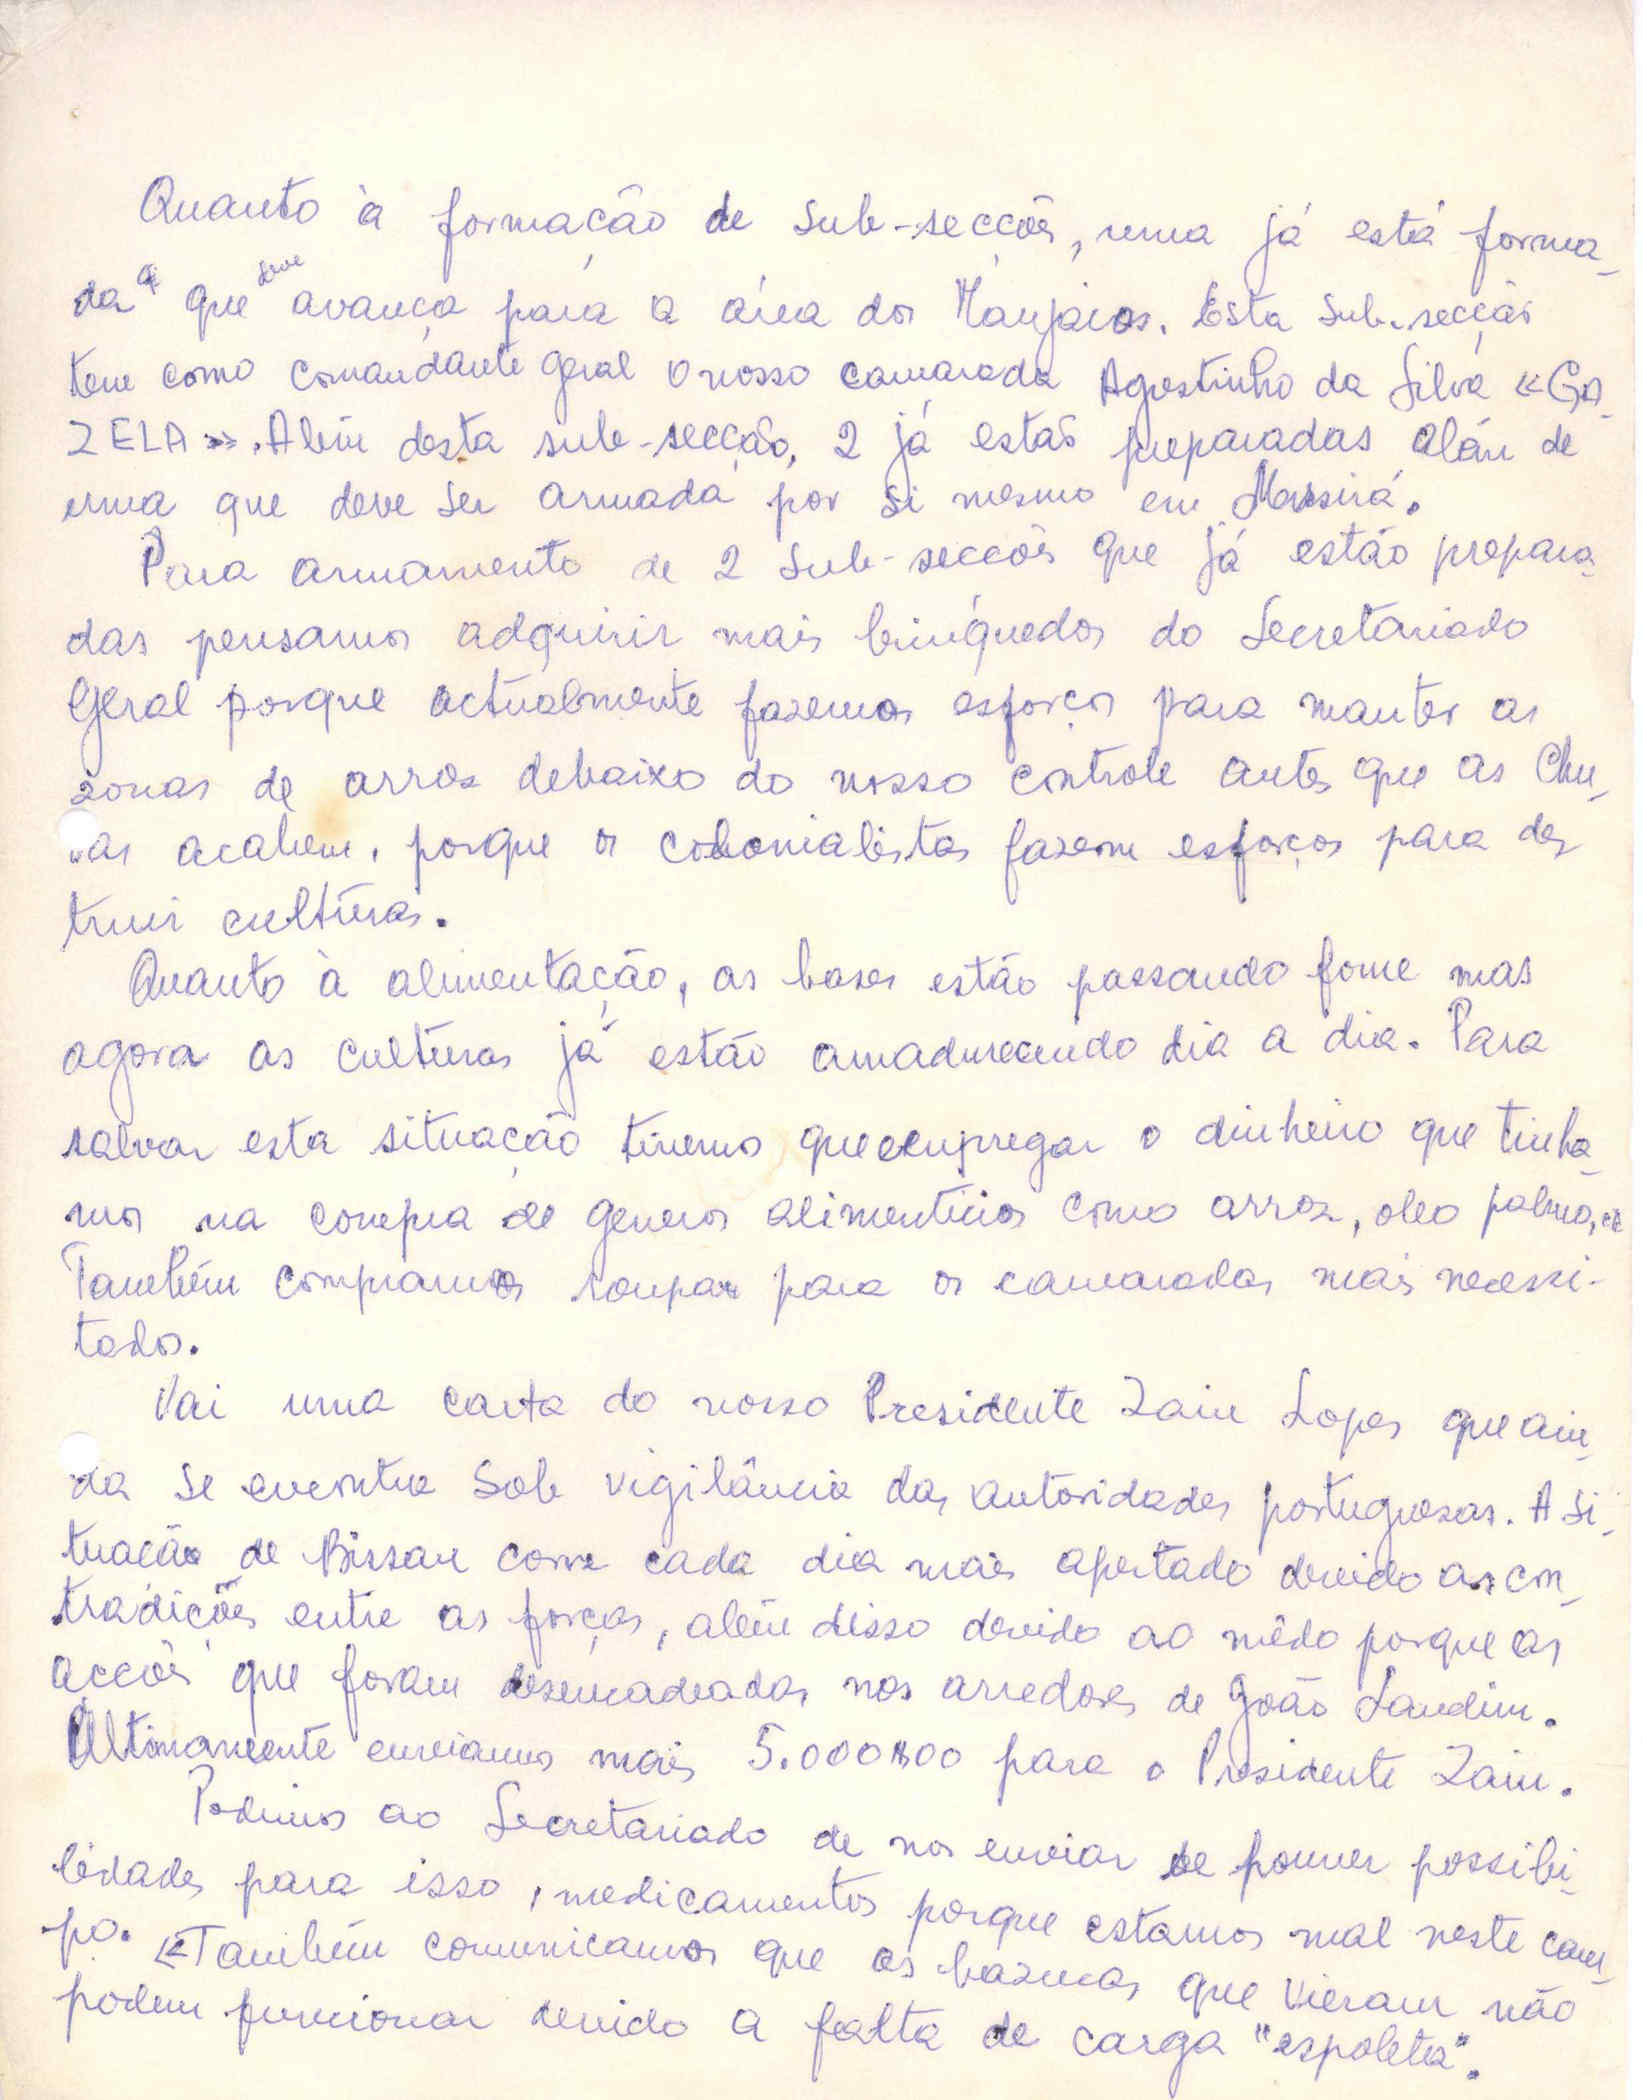 Quanto à formação de Sub-secções, uma já está forma-
da a que deve avança para a área dos Manjácos. Esta Sub-secção
tem como comandante geral o nosso camarada Agostinho da Silva «GA-
ZELA». Além desta sub-secção, 2 já estão preparadas além de
uma que deve ser armada por si mesmo em Massirá.
Para armamento de 2 Sub-secções que já estão prepara-
das pensamos adquirir mais brinquedos do Secretariado
Geral porque actualmente fazemos esforços para manter as
zonas de arroz debaixo do nosso controle antes que as Chu-
vas acabem, porque os colonialistas fazem esforços para des
truir culturas.
Quanto à alimentação, as bases estão passando fome mas
agora as culturas já estão amadurecendo dia a dia. Para
salvar esta situação tivemos que empregar o dinheiro que tinha-
mos na compra de generos alimentícios como arroz, oleo palma, etc
Também compramos roupas para os camaradas mais necessi-
tados.
Vai uma carta do nosso Presidente Zain Lopes que ain-
da se encontra Sob vigilância das autoridades portuguesas. A Si-
tuação de Bissau corre cada dia mais apertado devido as con-
tradições entre as forças, além disso devido ao mêdo porque as
acções que foram desencadeadas nos arredores de João Landim.
Ultimamente enviamos mais 5.000$00 para o Presidente Zain.
Pedimos ao Secretariado de nos enviar se houver possibi-
lidades para isso, medicamentos porque estamos mal neste cam-
po. «Também comunicamos que as bazucas que vieram não
podem funcionar devido a falta de carga "espoleta".